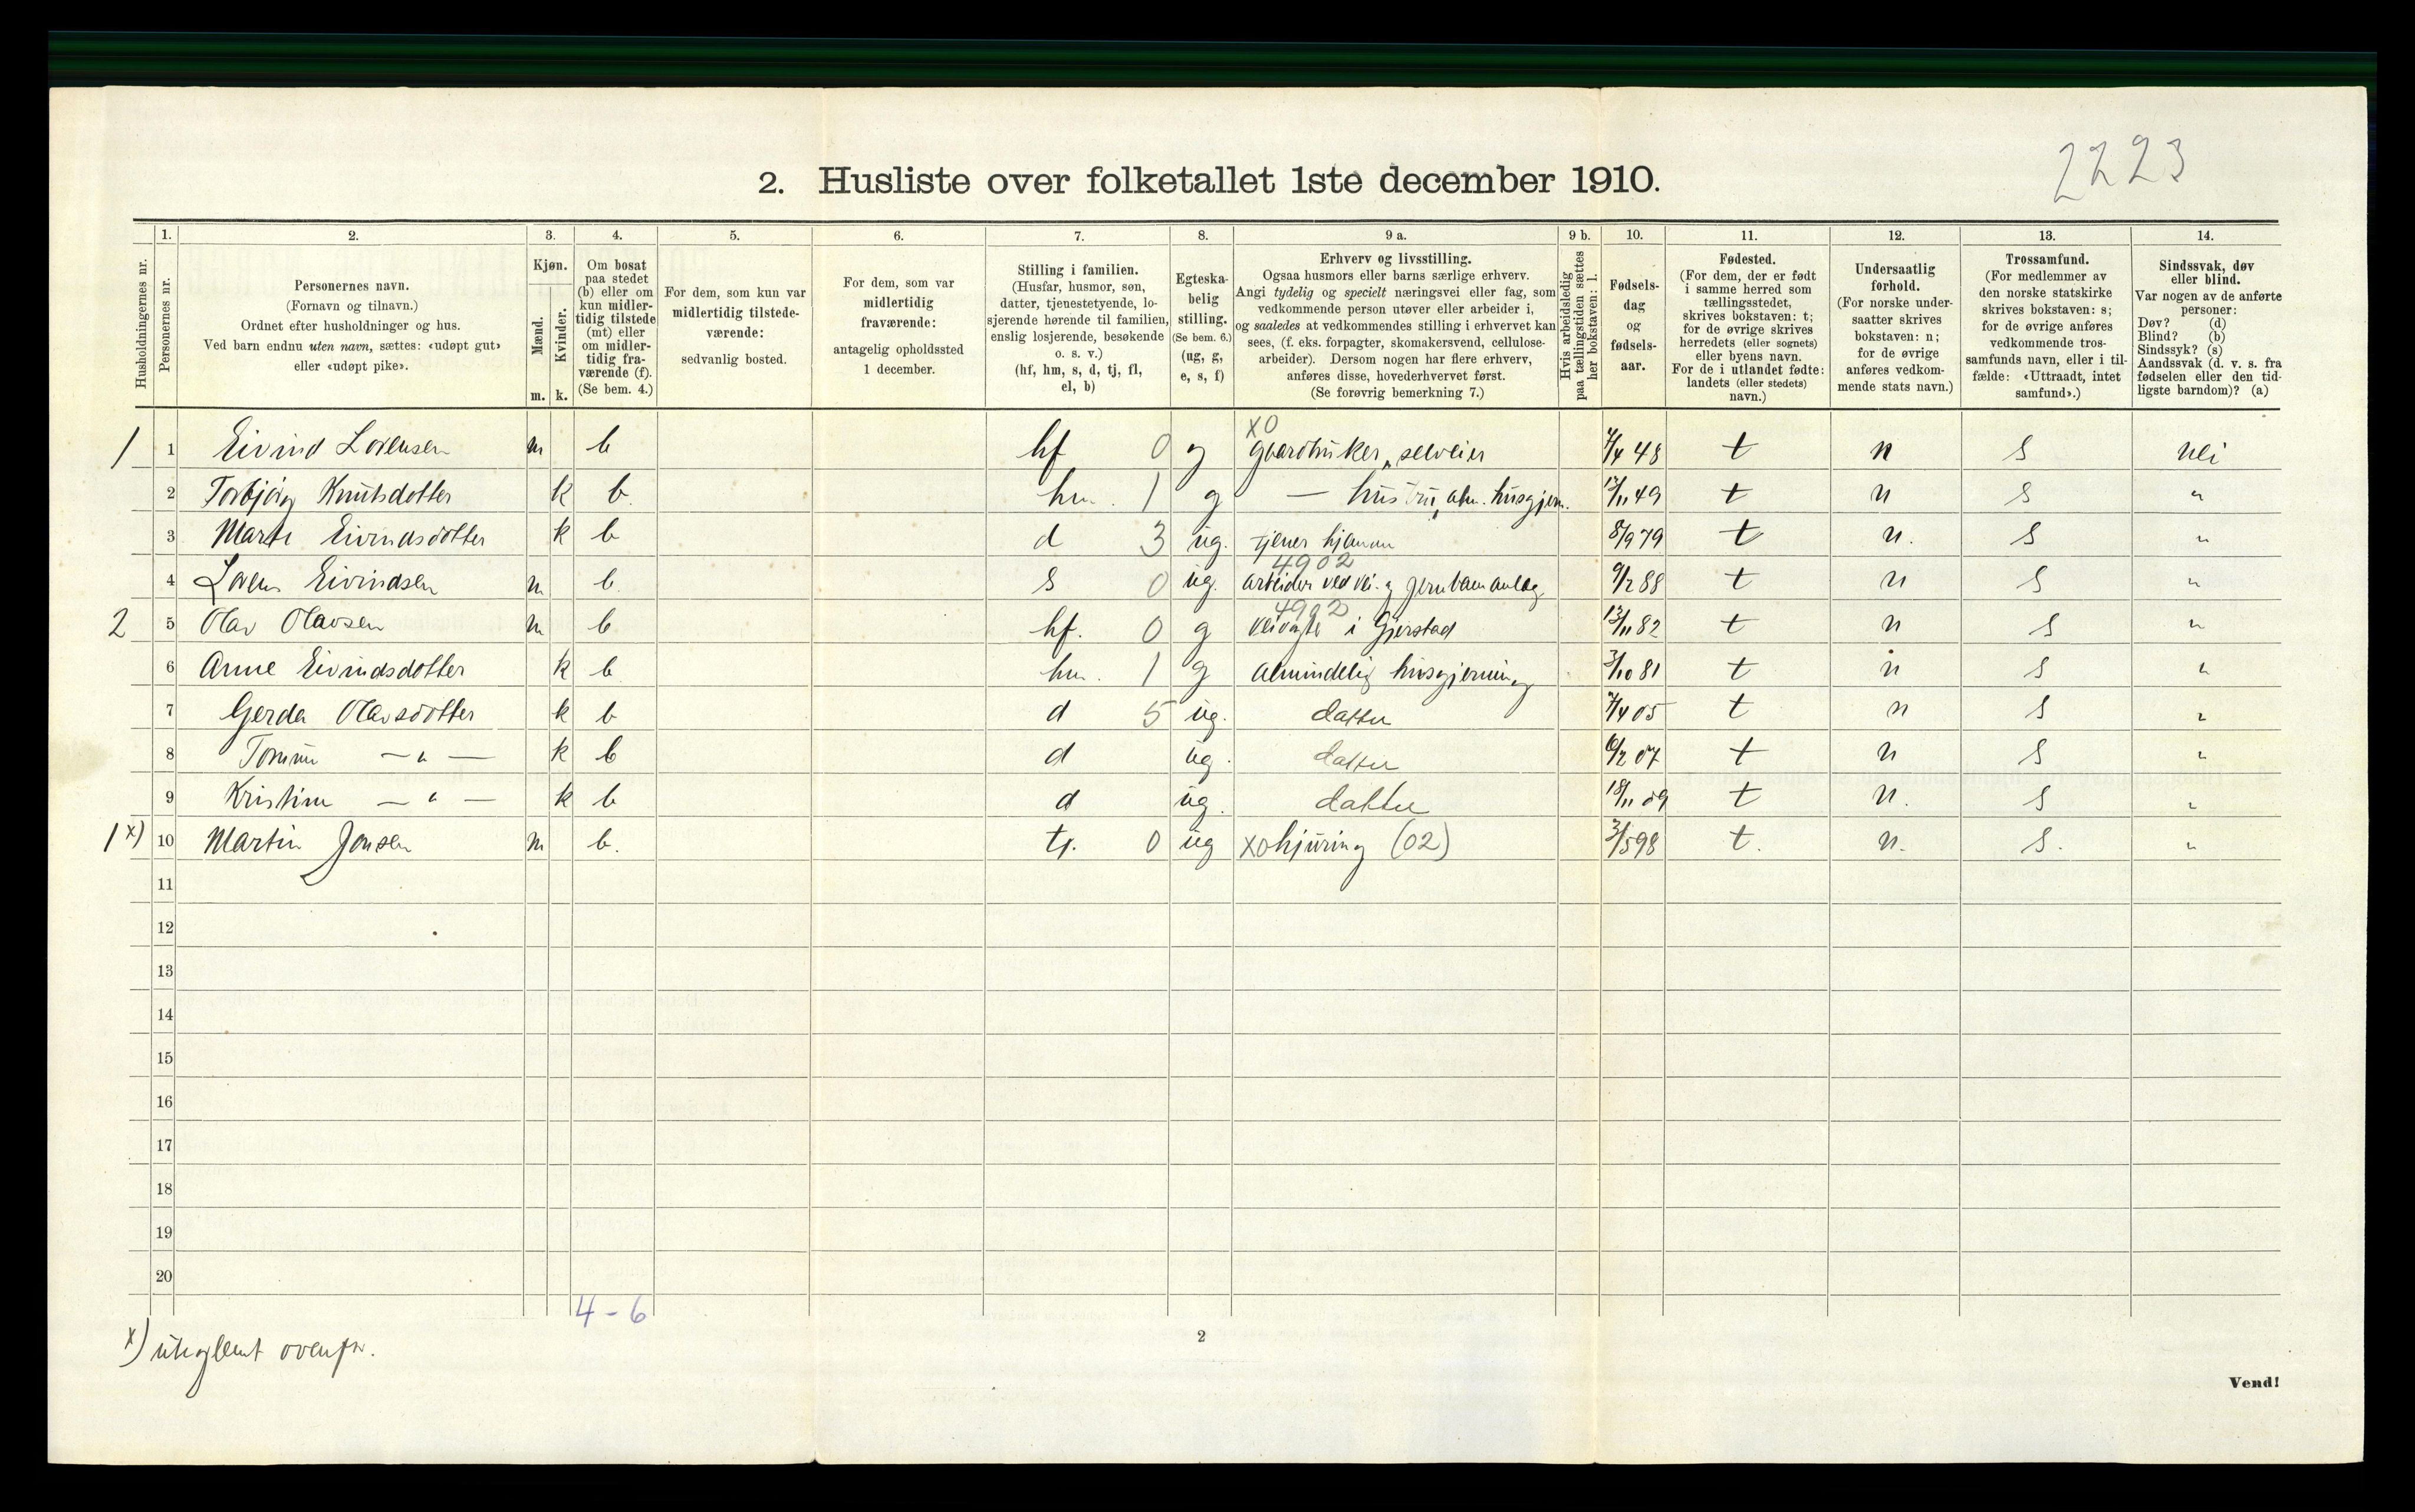 2223
2. Husliste over folketallet 1ste december 1910.
Husholdningernes nr.
1. Personernes nr.
2. Personernes navn. (Fornavn og tilnavn.) Ordnet efter husholdninger og hus. Ved barn endnu uten navn, sættes: «udøpt gut» eller «udøpt pike».
3. Kjøn. Mænd. m. Kvinder. k.
4. Om bosat paa stedet (b) eller om kun midlertidig tilstede (mt) eller om midlertidig fraværende (f). (Se bem. 4.)
5. For dem, som kun var midlertidig tilstedeværende: sedvanlig bosted.
6. For dem, som var midlertidig fraværende: antagelig opholdssted 1 december.
7. Stilling i familien. (Husfar, husmor, søn, datter, tjenestetyende, losjerende hørende til familien, enslig losjerende, besøkende o. s. v.) (hf, hm, s, d, tj, fl, el, b)
8. Egteskabelig stilling. (Se bem. 6.) (ug, g, e, s, f)
9 a. Erhverv og livsstilling. Ogsaa husmors eller barns særlige erhverv. Angi tydelig og specielt næringsvei eller fag, som vedkommende person utøver eller arbeider i, og saaledes at vedkommendes stilling i erhvervet kan sees, (f. eks. forpagter, skomakersvend, cellulosearbeider). Dersom nogen har flere erhverv, anføres disse, hovederhvervet først. (Se forøvrig bemerkning 7.)
9 b. Hvis arbeidsledig paa tællingstiden sættes her bokstaven: l.
10. Fødselsdag og fødselsaar.
11. Fødested. (For dem, der er født i samme herred som tællingsstedet, skrives bokstaven: t; for de øvrige skrives herredets (eller sognets) eller byens navn. For de i utlandet fødte: landets (eller stedets) navn.)
12. Undersaatlig forhold. (For norske undersaatter skrives bokstaven: n; for de øvrige anføres vedkommende stats navn.)
13. Trossamfund. (For medlemmer av den norske statskirke skrives bokstaven: s; for de øvrige anføres vedkommende trossamfunds navn, eller i tilfælde: «Uttraadt, intet samfund».)
14. Sindssvak, døv eller blind. Var nogen av de anførte personer: Døv? (d) Blind? (b) Sindssyk? (s) Aandssvak (d. v. s. fra fødselen eller den tidligste barndom)? (a)
1 1 Eivind Lorensen m b hf 0 g X0 gaardbruker, selveier 7/4 48 t n s nei
2 Torbjørg Knutsdotter k b hm. 1 g — hustru, alm. husgjern. 12/11 49 t n s "
3 Marte Eivindsdotter k b d 3 ug. tjener hjemme 8/9 79 t n. s "
4 Lorens Eivindsen m b s 0 ug. 4902 arbeider ved vei- og jernbaneanlæg 9/2 88 t n s "
2 5 Olav Olavsen m b hf. 0 g 4902 veivogter i Gjerstad 13/11 82 t n s "
6 Anne Eivindsdotter k b hm. 1 g Almindelig husgjerning 3/10 81 t n s "
7 Gerda Olavsdotter k b d 5 ug. datter 7/4 05 t n s "
8 Tomine — " — k b d ug. datter 6/2 07 t n s "
9 Kristine — " — k b d ug. datter 18/11 09 t n. s "
1 x) 10 Martin Jonsen m b. tj. 0 ug X0 hjuring (02) 3/5 98 t. n. s. "
11
12
13
14
15
16
17
18
19
20
4 - 6
x) uteglemt ovenfr.
2
Vend!